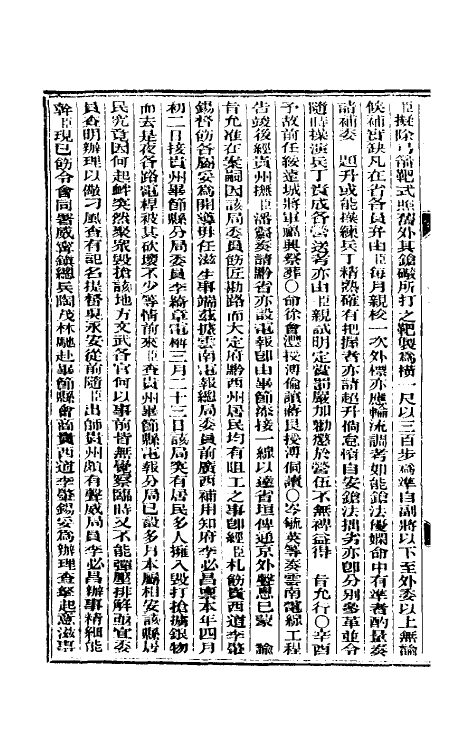 臣擬除弓箭靶式照舊外其鎗礮所打之靶製爲橫一尺以三百步爲準自副將以下至外委以上無論
候補實缺凡在省各員弁由臣每月親校一次外標亦應輪流調考如能鎗法優嫻命中有準者酌量奏
請補委　題升或能操練兵丁精熟確有把握者亦請超升倘怠惰自安鎗法拙劣亦卽分别參革並令
隨時操演兵丁責成各營送考亦由臣親試明定賞罰嚴加勸懲於營伍不無裨益得　旨允行〇辛酉
予故前任綏遠城將軍福興祭葬〇命徐會灃授溥倫讀蔣艮授溥侗讀〇岑毓英等奏雲南電線工程
告竣後經貴州撫臣潘霨奏請黔省亦設電報卽由畢節添接一線以達省垣俾通京外聲息已蒙　諭
旨允准在案詞因該局委員飭匠勘路而大定府黔西州居民均有阻工之事卽經臣札飭貴西道李肇
錫督飭各屬妥爲開導毋任滋生事端茲據雲南電報總局委員前廣西補用知府李必昌稟本年四月
初二日接貴州畢節縣分局委員李綺章電稱三月二十三日該局突有居民多人擁入毀打搶擄銀物
而去是夜各路電桿被其砍壞不少等情前來臣查貴州畢節縣電報分局已設多月本屬相安該縣居
民究竟因何起衅突然聚衆毀搶該地方文武各官何以事前皆無覺察臨時又不能彈壓排解亟宜委
員查明辦理以儆刁風查有記名提督吳永安從前隨臣出師貴州頗有聲威局員李必昌辦事精細能
幹臣現已飭令會同署威甯鎭總兵陶茂林馳赴畢節縣會商貴西道李肇錫妥爲辦理查拏起意滋事